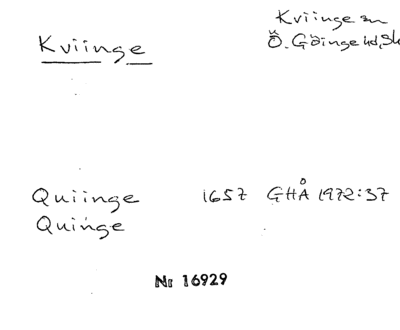 Kviinge
Kviinge sn
Ö. Göinge hd, Sk
Quiinge 1657 GHÅ 1972:37
Quinge
Nr 16929